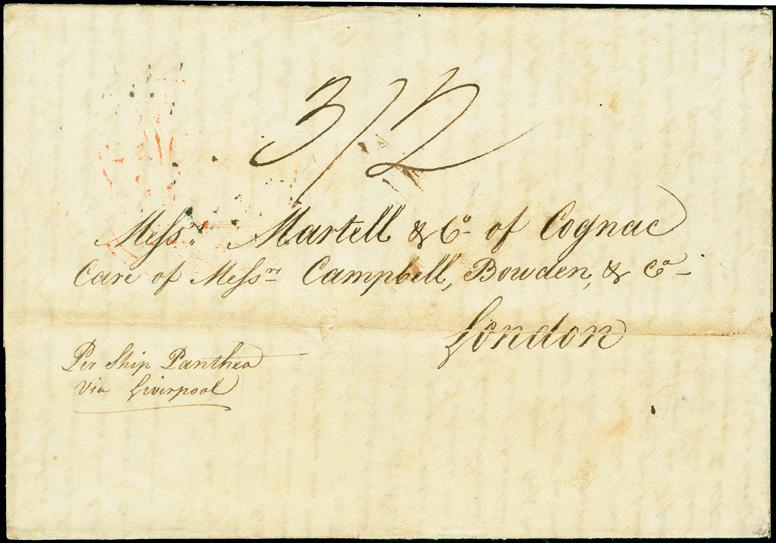 3/2
Messrs. Martell & Co. of Cognac
Care of Messrs Campbell, Bowden, & Co
London
Per Ship Panthea
Via Liverpool